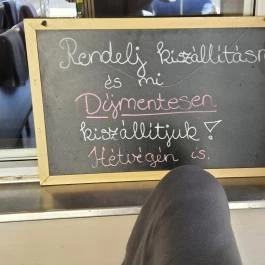 Rendelj kiszállításr
és mi
Díjmentesen
kiszállítjuk!
Hétvégén is.